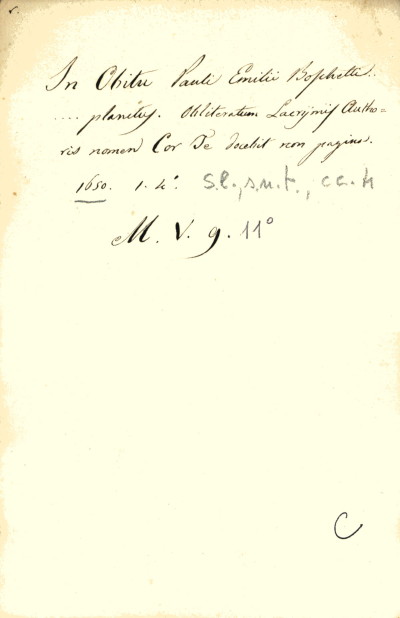 In Obitu Pauli Emilii Bophetti..
.... planctus. Obliteratum Lacrÿmis Autho=
ris nomen Cor Te docebit non pagina.
1650. 1. 4°. S.l., s.n.t., cc. 4
M. V. g. 11°
C